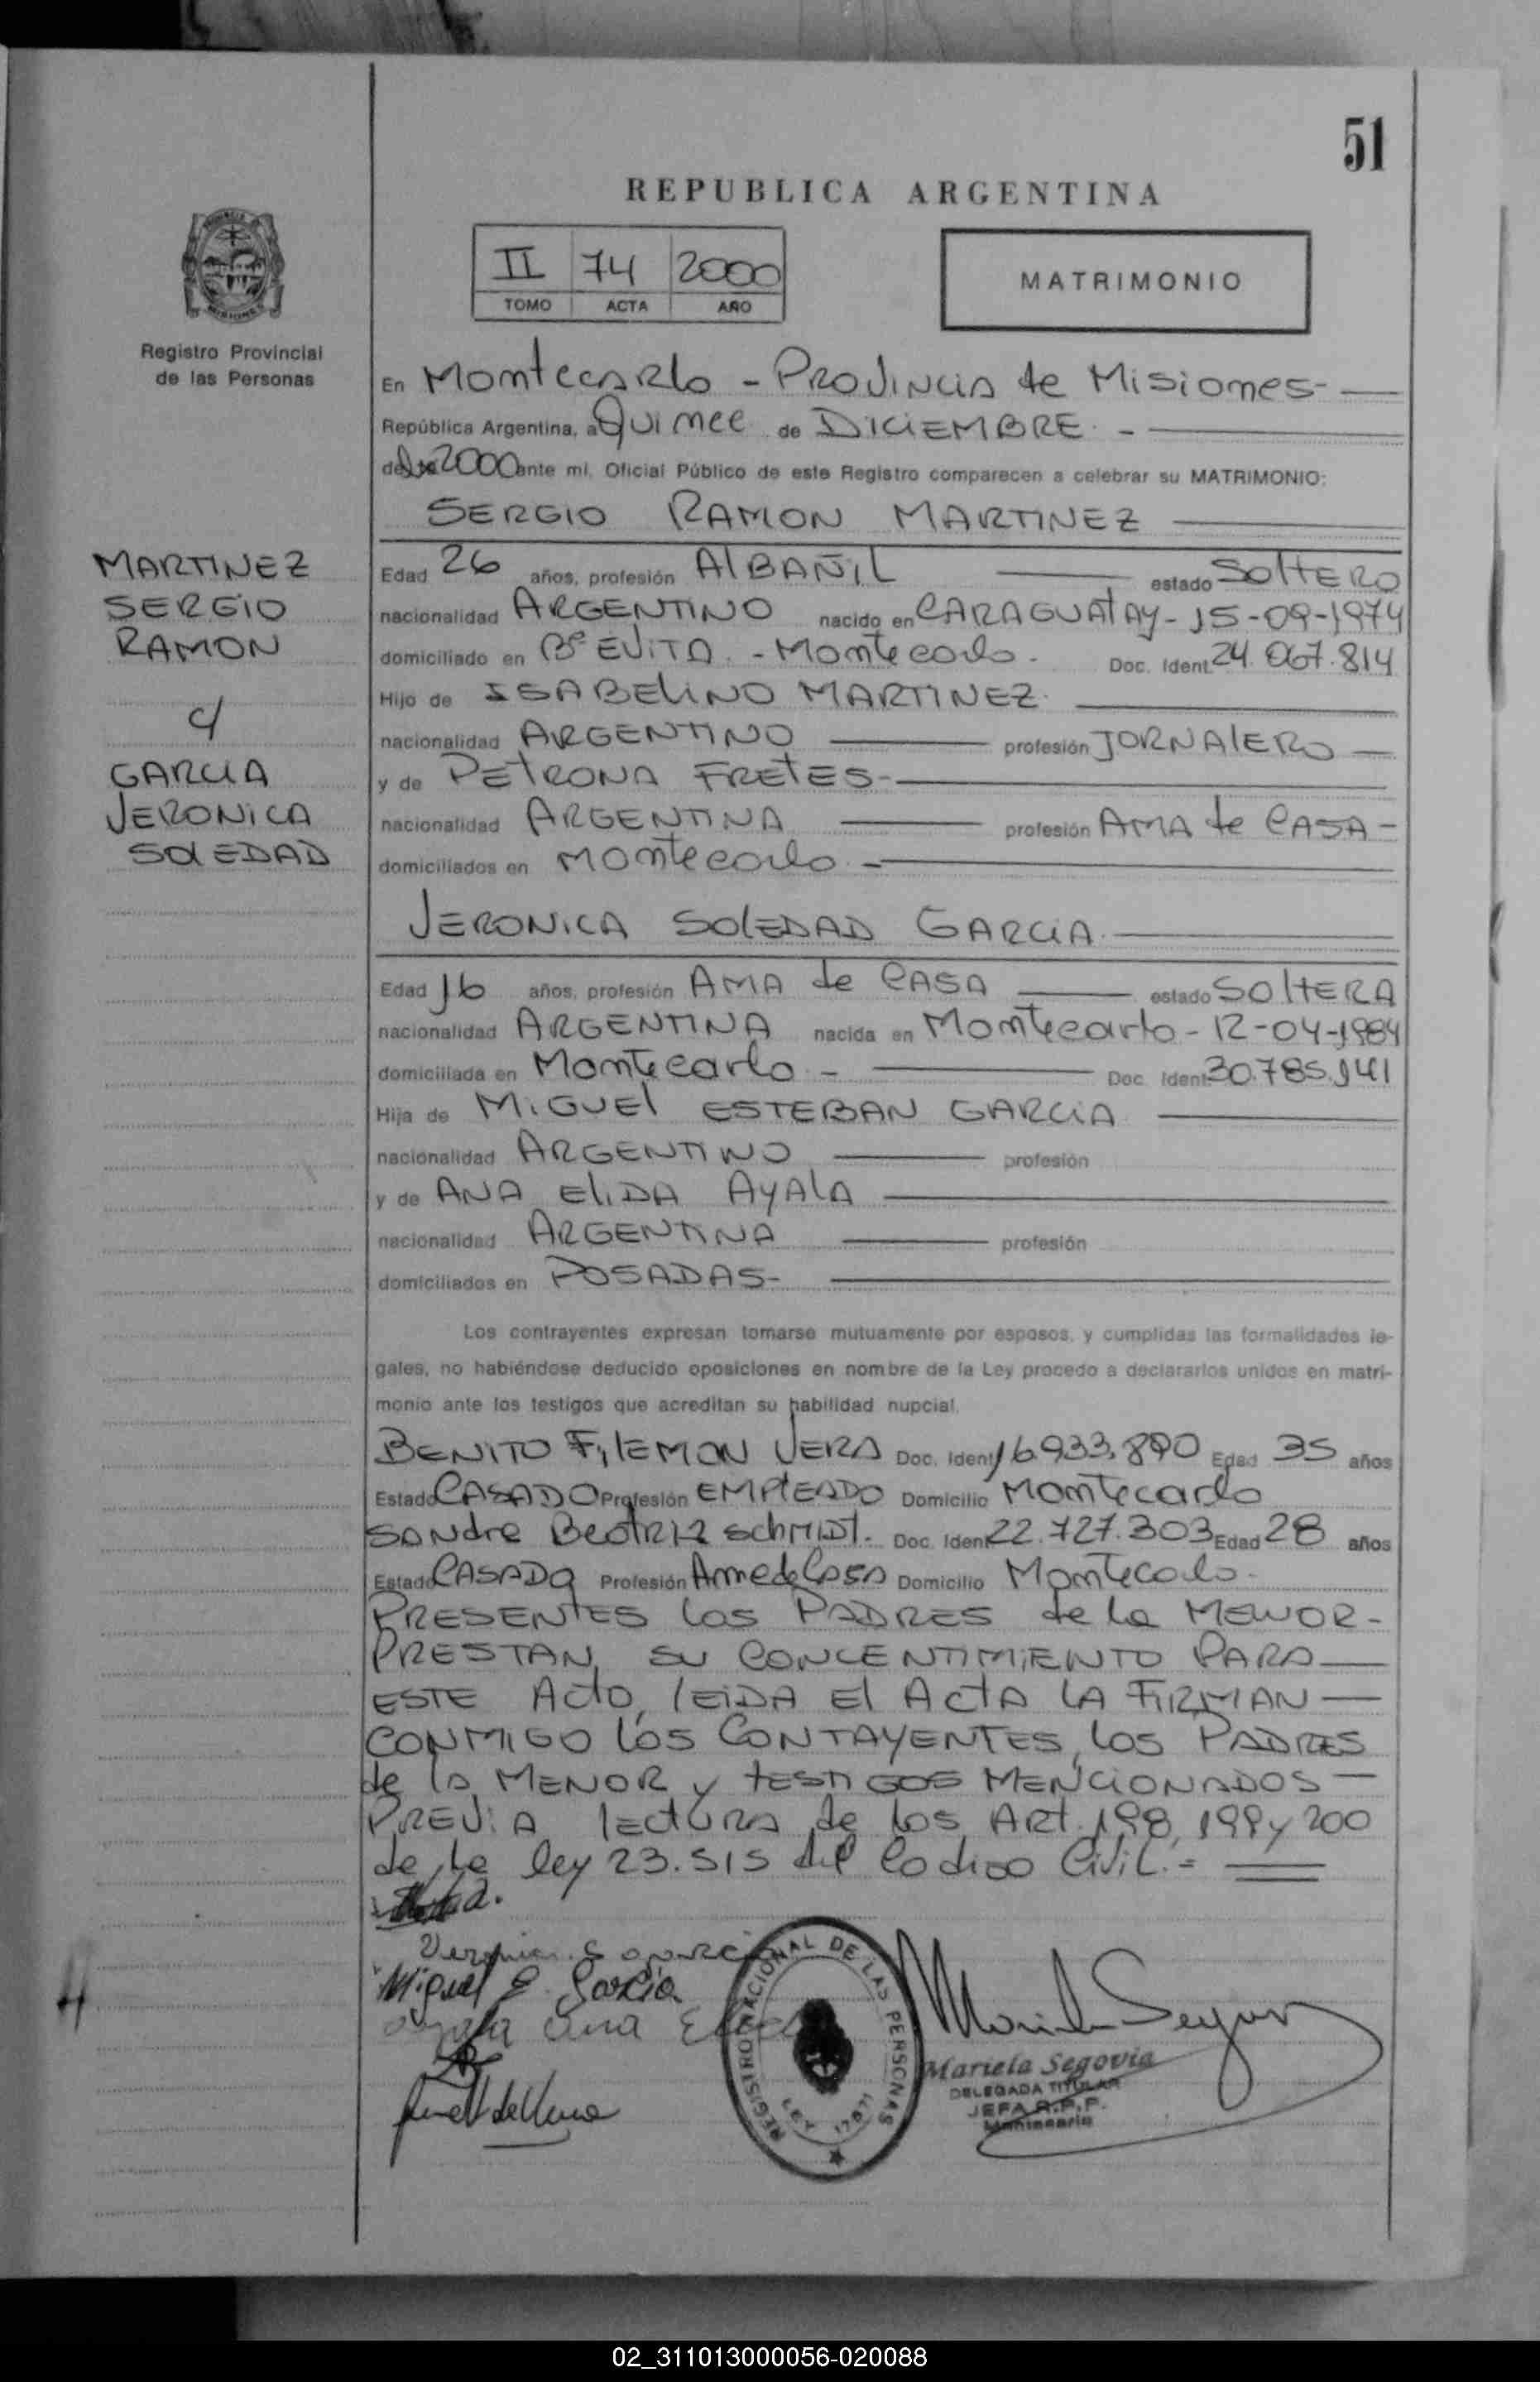 51
REPUBLICA ARGENTINA
II 74 2000
TOMO ACTA AÑO
MATRIMONIO
Registro Provincial
de las Personas
En Montecarlo - Provincia de Misiones -
República Argentina, a Quince de DICIEMBRE. -
del 2000 ante mí, Oficial Público de este Registro comparecen a celebrar su MATRIMONIO:
SERGIO RAMON MARTINEZ
MARTINEZ
SERGIO
RAMON
c/
GARCIA
VERONICA
SOLEDAD
Edad 26 años, profesión AlBAÑIL estado SOltERO
nacionalidad ARGENTINO nacido en CARAGUATAY - 15-09-1974
domiciliado en Bº EVITA. - Montecarlo. Doc. Ident. 24.067.814
Hijo de ISABELINO MARTINEZ.
nacionalidad ARGENTINO profesión JORNAlERO
y de PETRONA FRETES -
nacionalidad ARGENTINA profesión AMA de CASA -
domiciliados en Montecarlo. -
VERONICA SOlEDAD GARCIA.
Edad 16 años, profesión AMA de CASA estado SOltERA
nacionalidad ARGENTINA nacida en Montecarlo - 12-04-1984
domiciliada en Montecarlo - Doc. Ident. 30.785.141
Hija de MIGUEl ESTEBAN GARCIA
nacionalidad ARGENTINO profesión
y de ANA ElIDA AYALA
nacionalidad ARGENTINA profesión
domiciliados en POSADAS -
Los contrayentes expresan tomarse mutuamente por esposos, y cumplidas las formalidades le-
gales, no habiéndose deducido oposiciones en nombre de la Ley procedo a declararlos unidos en matri-
monio ante los testigos que acreditan su habilidad nupcial.
BENITO FilEMON VERA Doc. Ident. 16.933.890 Edad 35 años
Estado CASADO Profesión EMPlEADO Domicilio Montecarlo
SANdra Beatriz SchMIDT. Doc. Ident. 22.727.303 Edad 28 años
Estado CASADA Profesión Ama de Casa Domicilio Montecarlo.
PRESENTES los PADRES de la MENOR -
PRESTAN SU CONCENTIMIENTO PARA
ESTE ActO, lEIDA El ActA LA FIRMAN
CONMIGO los CONTAYENTES, los PADRES
de la MENOR y tESTIGOS MENCIONADOS
PREVIA lEctURA de los Art. 198, 199 y 200
de la ley 23.515 del Codigo Civil. =
Miguel E. Garcia
Ayala Ana
REGISTRO NACIONAL DE LAS PERSONAS
LEY 17671
Mariela Segovia
DELEGADA TITULAR
JEFA R.P.P.
Montecarlo
02_311013000056-020088